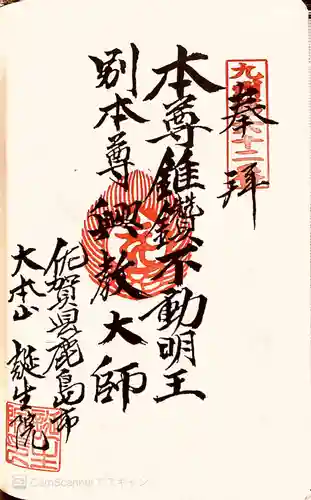 奉拝
本尊錐鑚不動明王
別本尊興教大師
佐賀県鹿島市
大本山 誕生院
CamScannerでスキャン